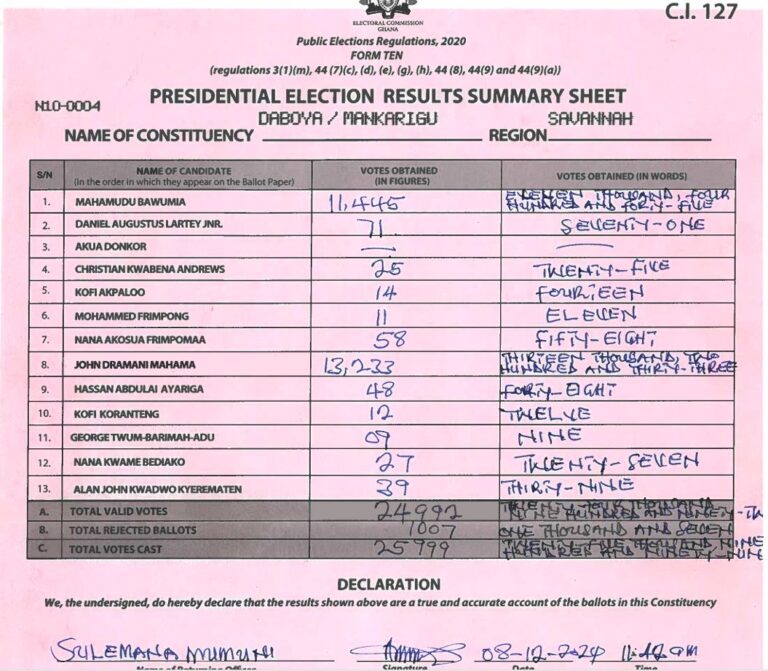 C.I. 127
ELECTORAL COMMISSION
GHANA
Public Elections Regulations, 2020
FORM TEN
(regulations 3(1)(m), 44 (7)(c), (d), (e), (g), (h), 44 (8), 44(9) and 44(9)(a))
N10-0004
PRESIDENTIAL ELECTION RESULTS SUMMARY SHEET
NAME OF CONSTITUENCY DABOYA / MANKARIGU REGION SAVANNAH
S/N NAME OF CANDIDATE (In the order in which they appear on the Ballot Paper) VOTES OBTAINED (IN FIGURES) VOTES OBTAINED (IN WORDS)
1. MAHAMUDU BAWUMIA 11,445 ELEVEN THOUSAND, FOUR HUNDRED AND FORTY-FIVE
2. DANIEL AUGUSTUS LARTEY JNR. 71 SEVENTY-ONE
3. AKUA DONKOR — —
4. CHRISTIAN KWABENA ANDREWS 25 TWENTY-FIVE
5. KOFI AKPALOO 14 FOURTEEN
6. MOHAMMED FRIMPONG 11 ELEVEN
7. NANA AKOSUA FRIMPOMAA 58 FIFTY-EIGHT
8. JOHN DRAMANI MAHAMA 13,233 THIRTEEN THOUSAND, TWO HUNDRED AND THIRTY-THREE
9. HASSAN ABDULAI AYARIGA 48 FORTY-EIGHT
10. KOFI KORANTENG 12 TWELVE
11. GEORGE TWUM-BARIMAH-ADU 09 NINE
12. NANA KWAME BEDIAKO 27 TWENTY-SEVEN
13. ALAN JOHN KWADWO KYEREMATEN 39 THIRTY-NINE
A. TOTAL VALID VOTES 24992 THOUSAND NINE HUNDRED AND NINETY-TW
B. TOTAL REJECTED BALLOTS 1007 ONE THOUSAND AND SEVEN
C. TOTAL VOTES CAST 25999 TWENTY-FIVE THOUSAND NINE HUNDRED AND NINETY-NINE
DECLARATION
We, the undersigned, do hereby declare that the results shown above are a true and accurate account of the ballots in this Constituency
SULEMANA MUMUNI 08-12-2024 11:42am
Name of Returning Officer Signature Date Time